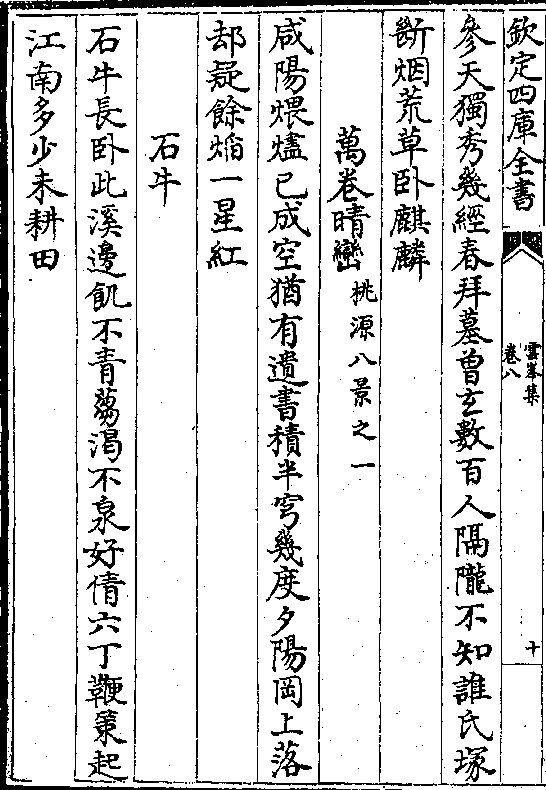 欽定四庫全書
雲峯集
卷八
十
參天獨秀幾經春拜墓曾玄數百人隔隴不知誰氏塚
斷烟荒草卧麒麟
萬卷晴巒桃源八景之一
咸陽煨燼已成空猶有遺書積半穹幾度夕陽岡上落
却疑餘焰一星紅
石牛
石牛長卧此溪邊飢不青蒭渴不泉好倩六丁鞭策起
江南多少未耕田